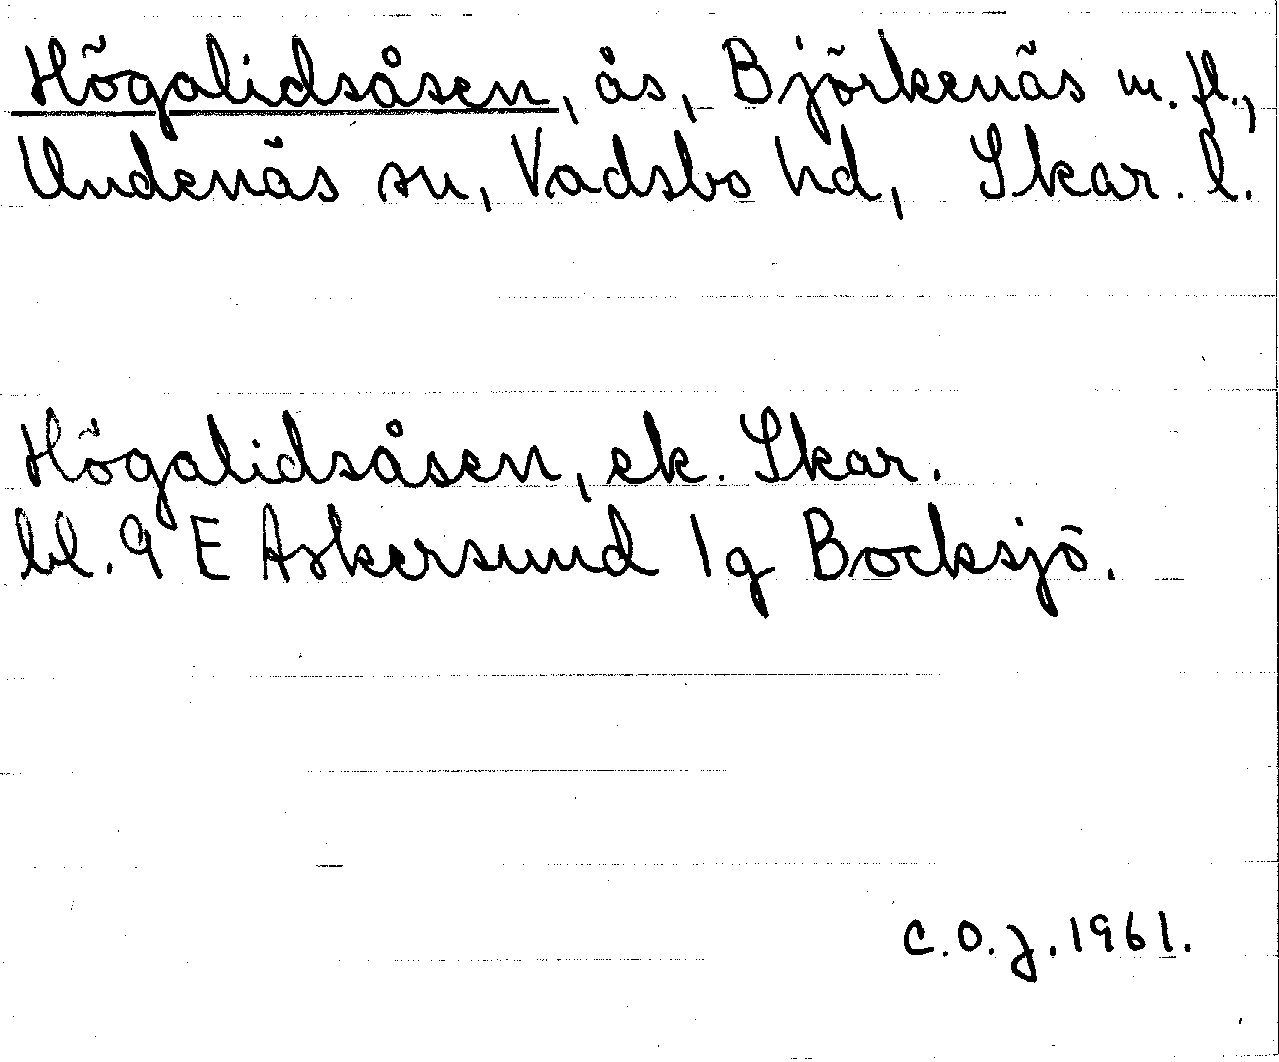 Högalidsåsen, ås, Björkenäs m. fl.,
Undenäs sn, Vadsbo hd, Skar. l.
Högalidsåsen, ek. Skar.
bl. 9 E Askersund 1g Bocksjö.
C.O.J. 1961.